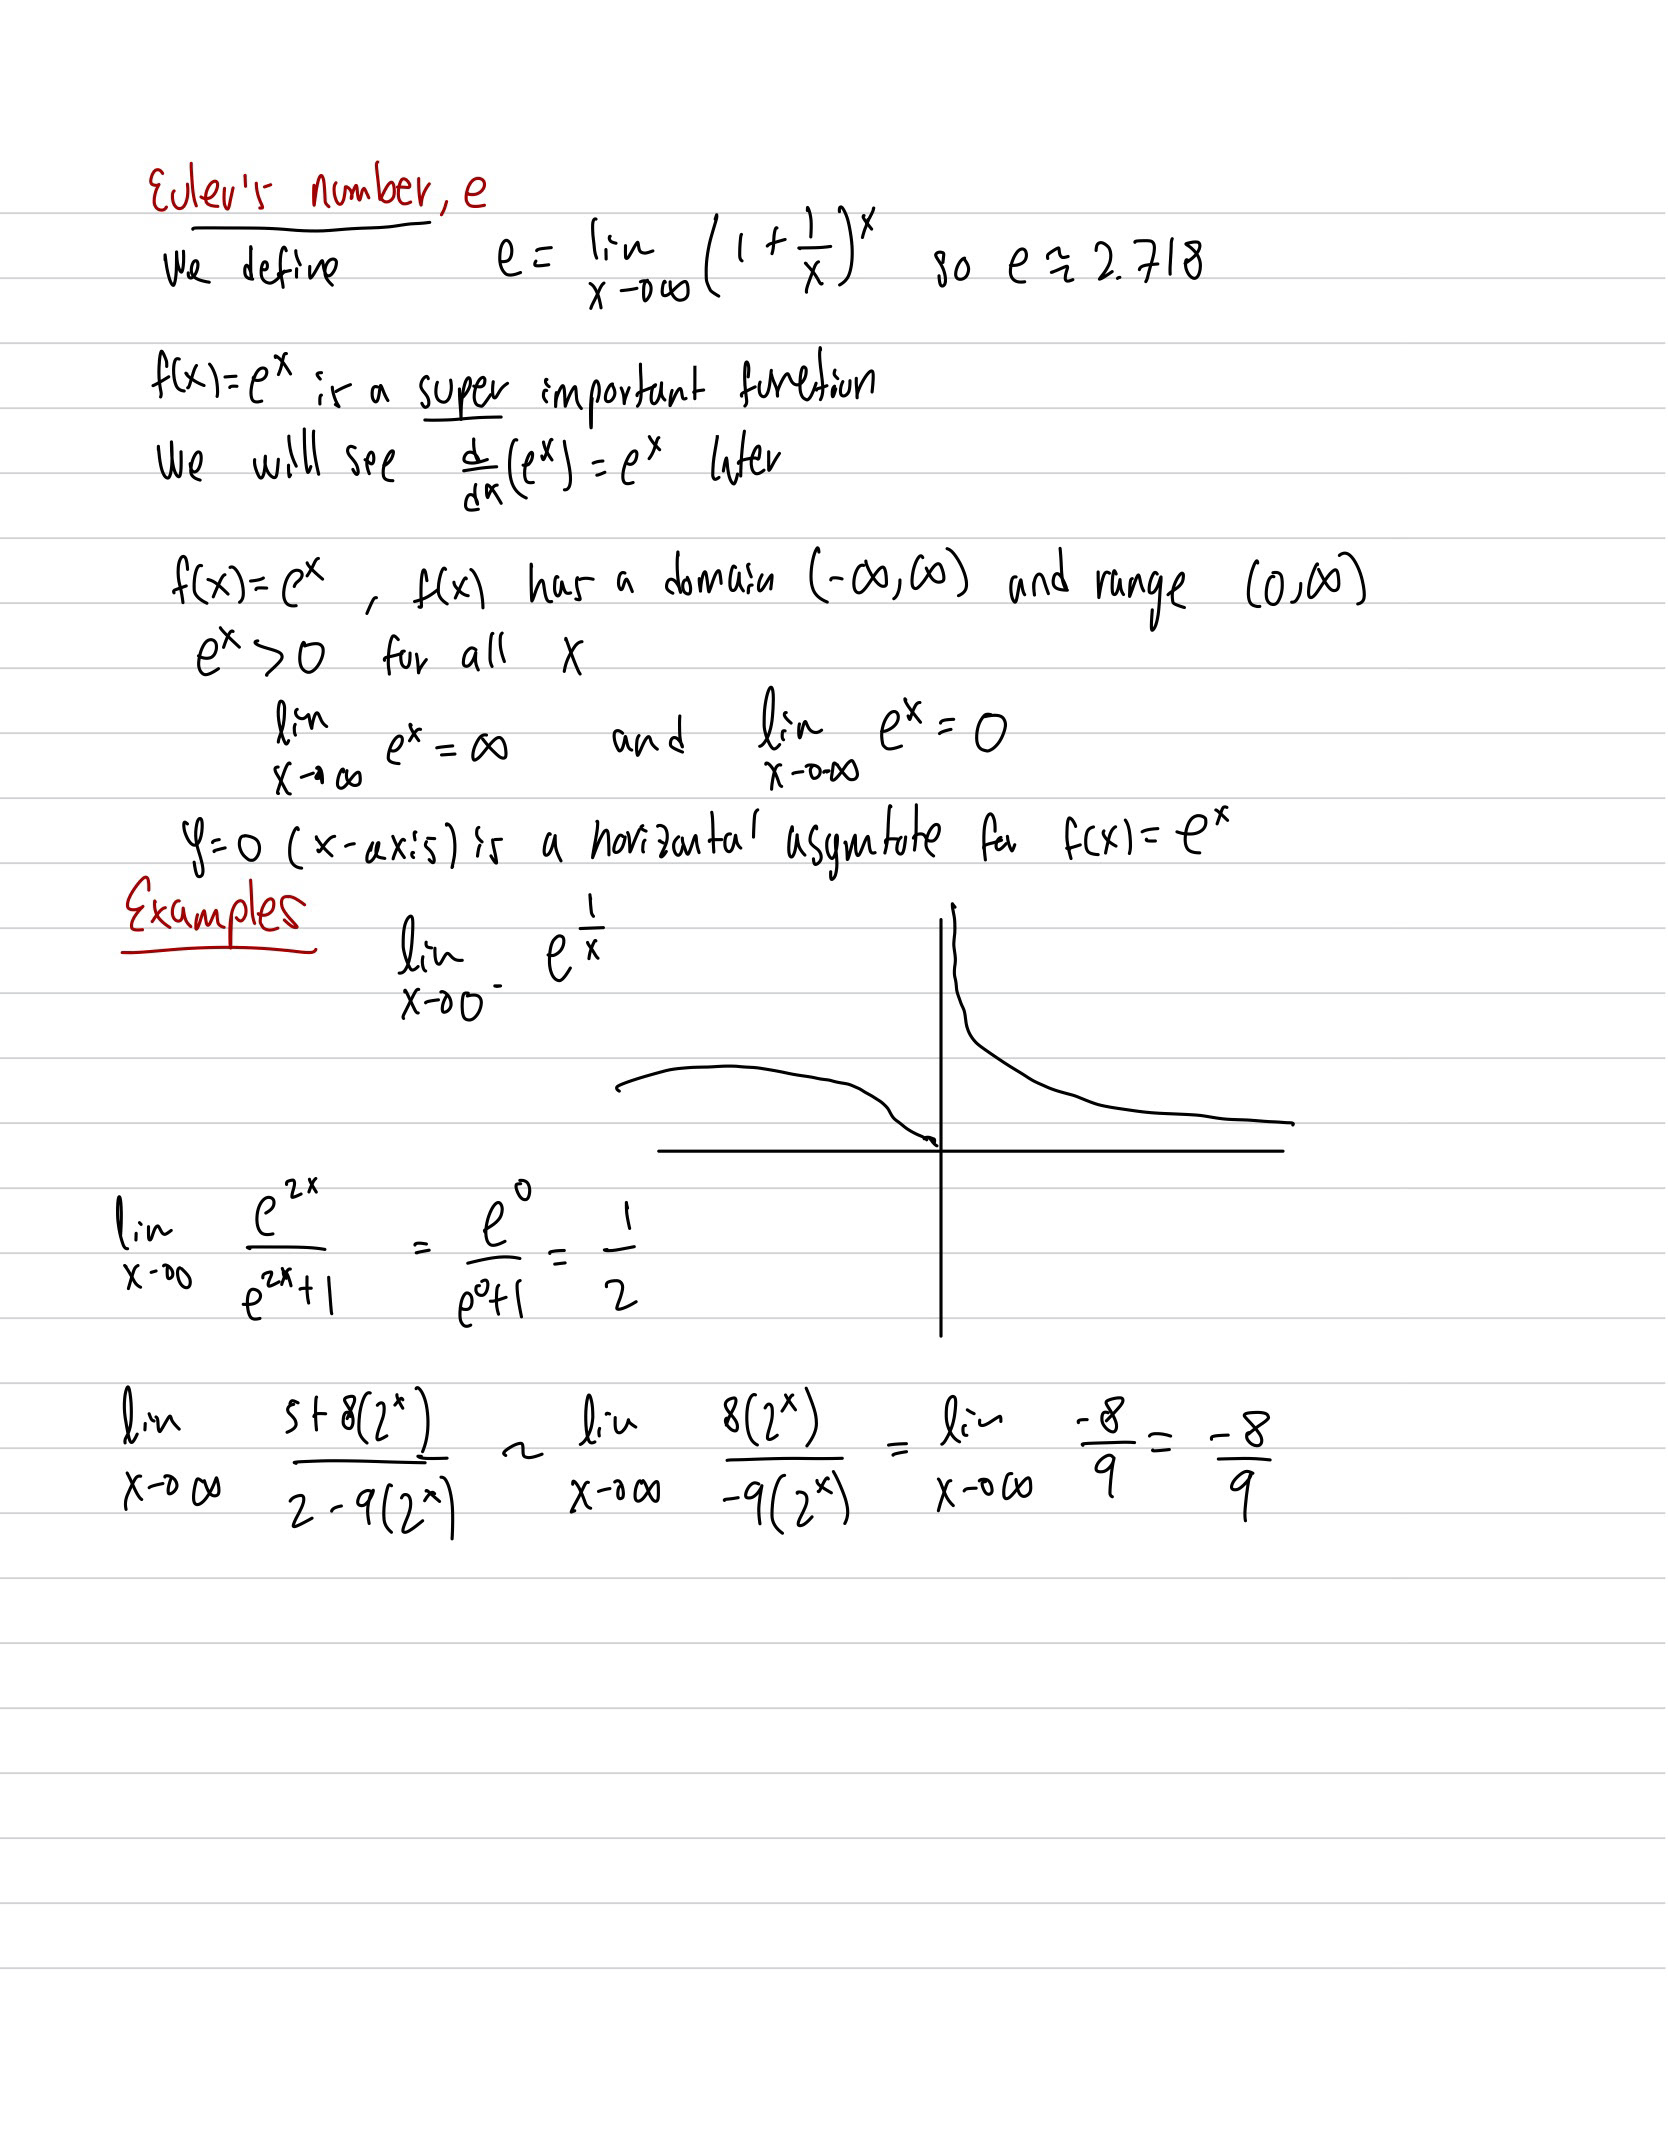 Euler's number, e
We define e = lim x→∞ (1 + 1/x)^x so e ≈ 2.718
f(x)=e^x is a super important function
We will see d/dx (e^x) = e^x later
f(x)=e^x , f(x) has a domain (-∞,∞) and range (0,∞)
e^x > 0 for all x
lim x→∞ e^x = ∞ and lim x→-∞ e^x = 0
y=0 (x-axis) is a horizontal asymtote for f(x)=e^x
Examples lim x→0^- e^(1/x)
lim x→0 e^(2x)/(e^(2x)+1) = e^0/(e^0+1) = 1/2
lim x→∞ (5+8(2^x))/(2-9(2^x)) ~ lim x→∞ 8(2^x)/(-9(2^x)) = lim x→∞ -8/9 = -8/9